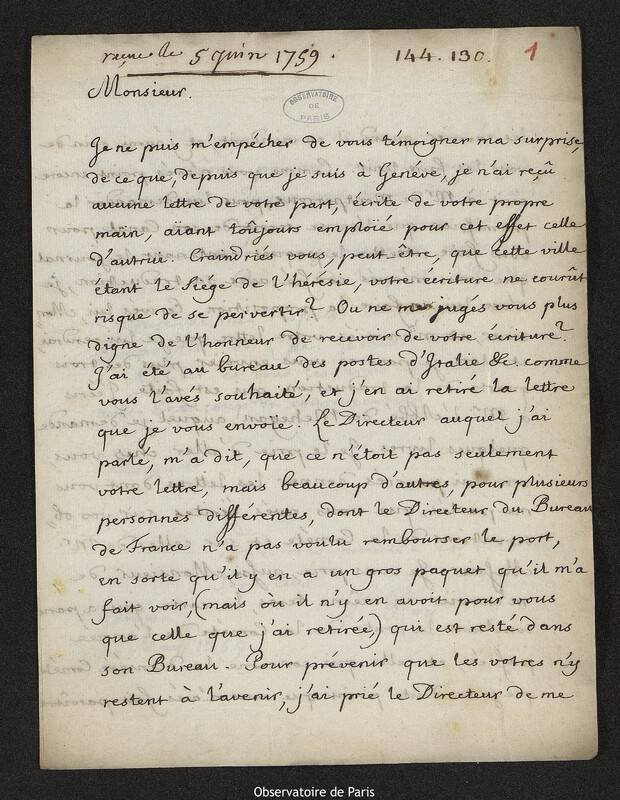 reçue le 5 Juin 1759. 144. 130. 1
Monsieur.
OBSERVATOIRE
DE
PARIS
Je ne puis m'empécher de vous témoigner ma surprise,
de ce que, depuis que je suis à Genéve, je n'ai reçû
aucune lettre de votre part, écrite de votre propre
main, aiant toûjours emploïé pour cet effet celle
d'autrui. Craindriés vous, peut être, que cette ville
étant le Siége de l'hérésie, votre écriture ne courût
risque de se pervertir? Ou ne me jugés vous plus
digne de l'honneur de recevoir de votre écriture?
J'ai été au bureau des postes d'Italie &c comme
vous l'avés souhaité, et j'en ai retiré la lettre
que je vous envoïe. Le Directeur auquel j'ai
parlé, m'a dit, que ce n'étoit pas seulement
votre lettre, mais beaucoup d'autres, pour plusieurs
personnes différentes, dont le Directeur du Bureau
de France n'a pas voulu rembourser le port,
en sorte qu'il y en a un gros paquet qu'il m'a
fait voir, (mais où il n'y en avoit pour vous
que celle que j'ai retirée,) qui est resté dans
son Bureau. Pour prévenir que les votres n'y
restent à l'avenir, j'ai prié le Directeur de me
Observatoire de Paris